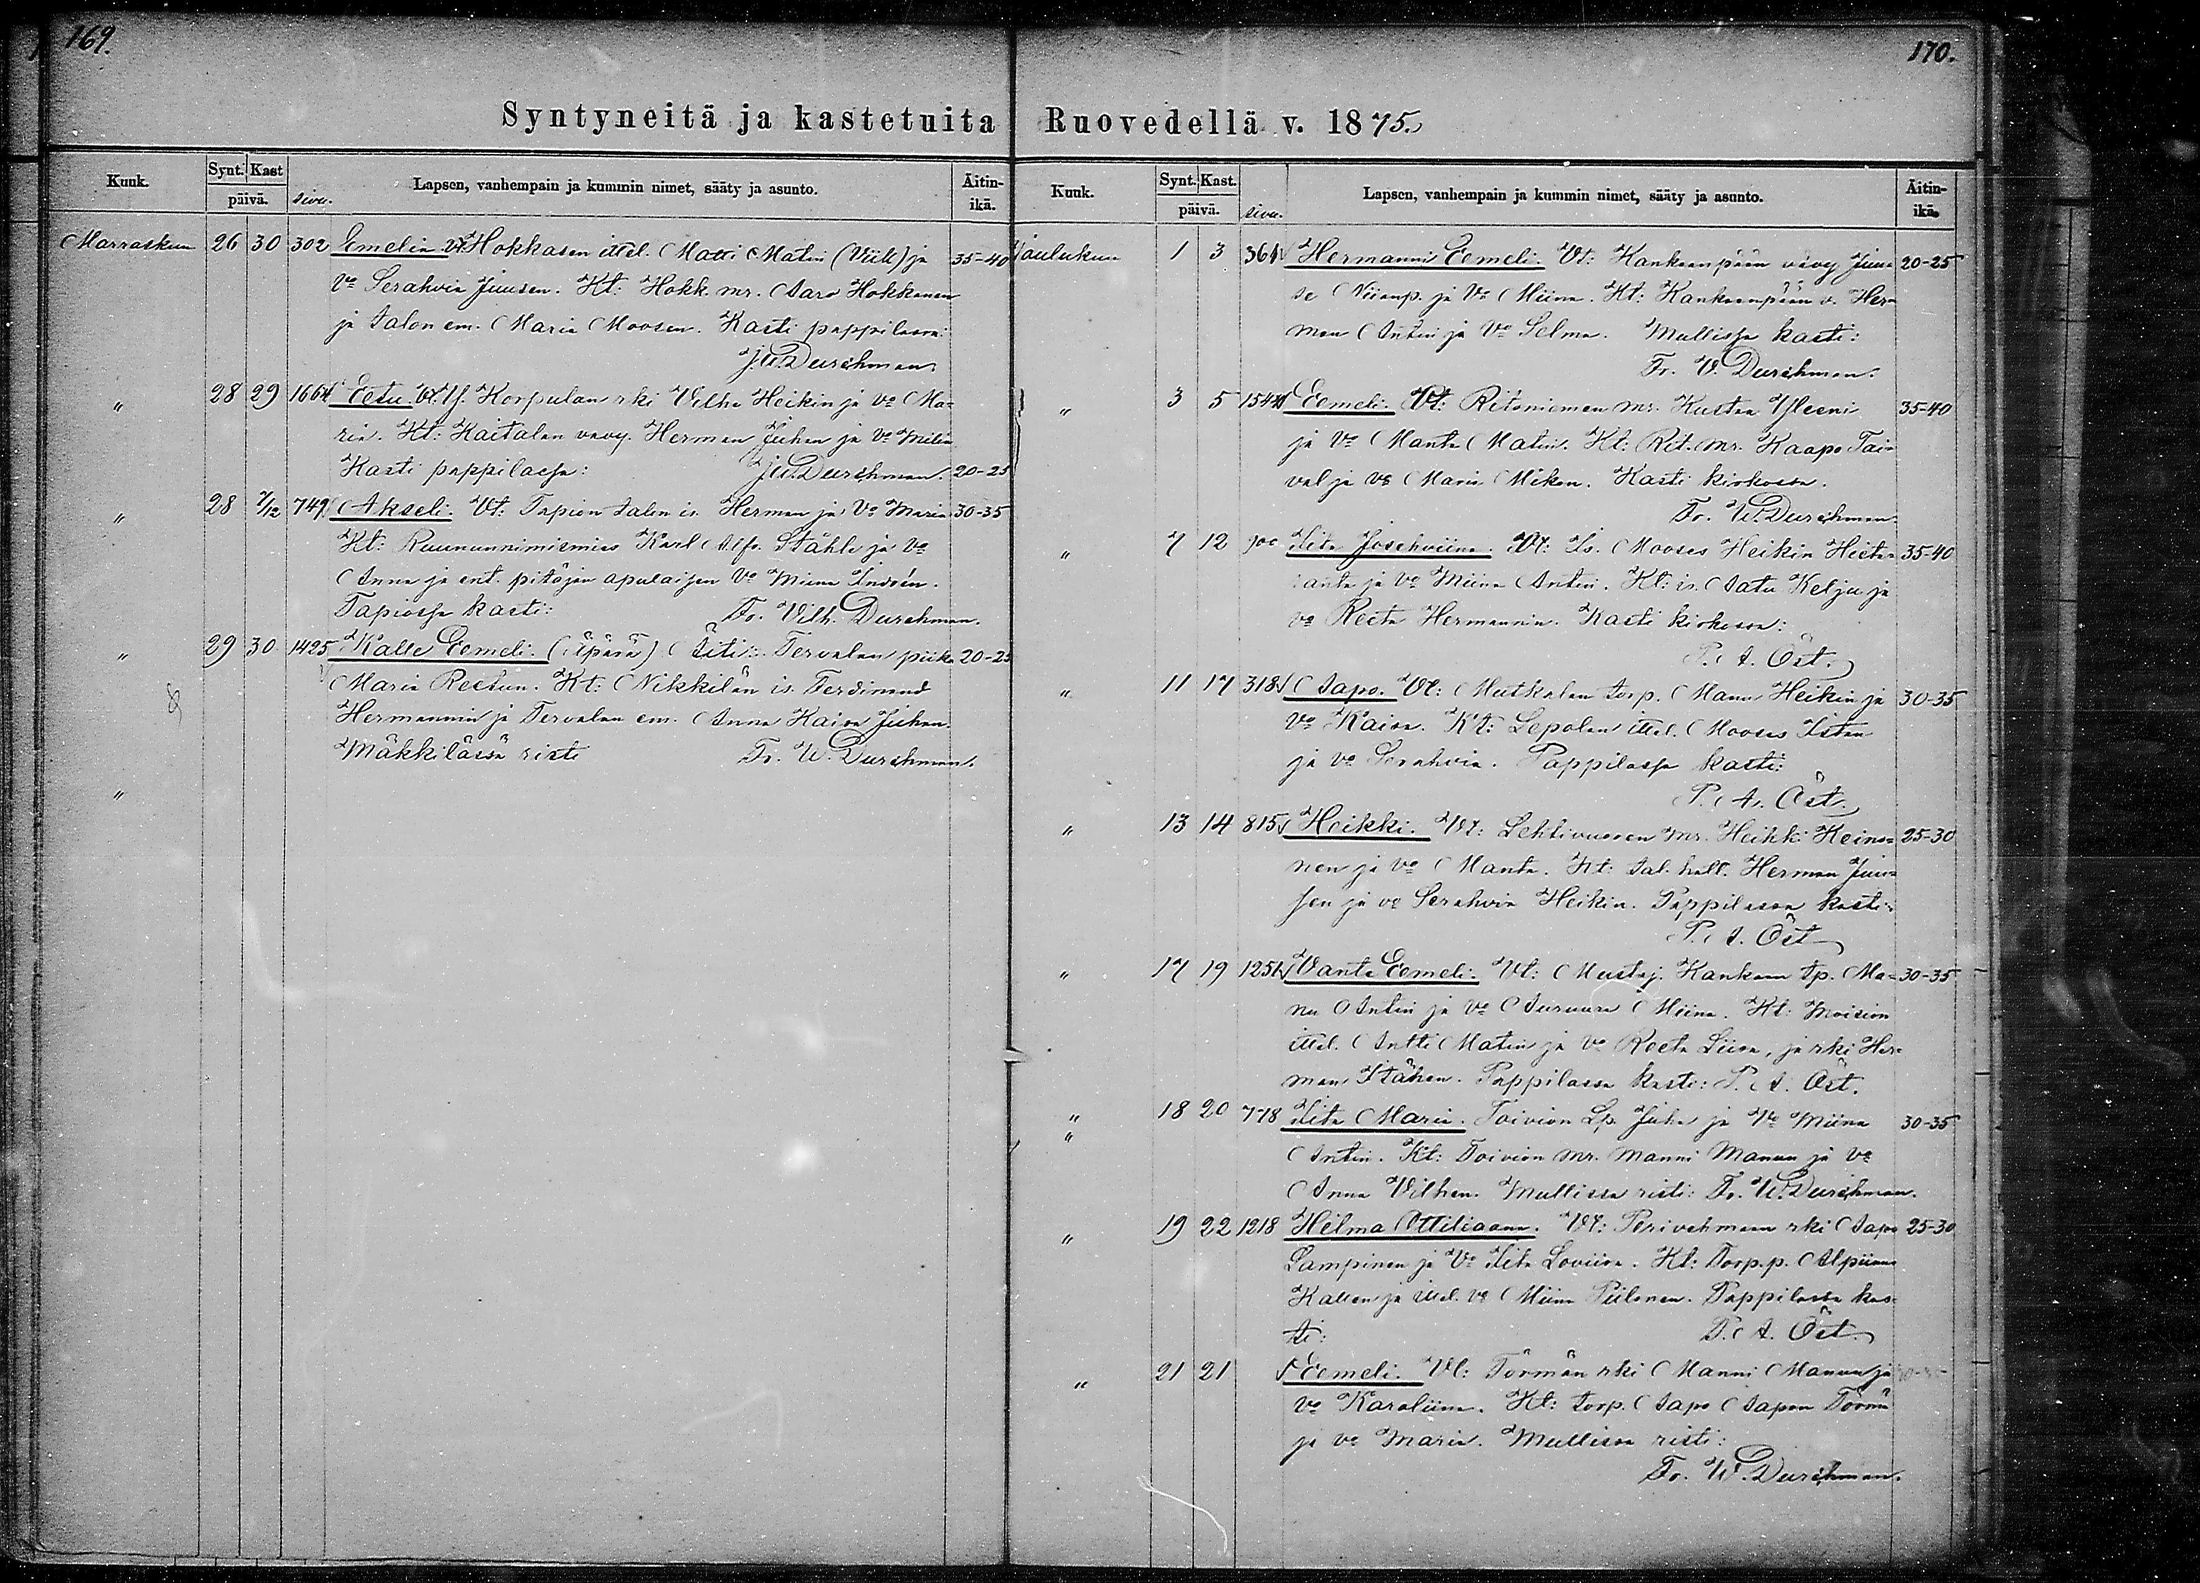 169.
Syntyneitä ja kastetuita
Kuuk. Synt. Kast päivä. sivu. Lapsen, vanhempain ja kummin nimet, sääty ja asunto. Äitin-ikä.
Marraskuu 26 30 302 Emelia Vt. Hokkasen ittel. Matti Matin (Viik) ja 35-40
Vo Serahvia Juusen. Kt: Hokk. mr. Aaro Hokkanen
ja talon em. Maria Moosen. Kasti pappilassa:
J.W. Durchman
" 28 29 1664 Eetu. Vt. Y. Korpulan rki Vilho Heikin ja vo Ma=
ria. Kt: Kaitalan vävy. Herman Juhan ja Vo Miina
Kasti pappilassa: J.W. Durchman. 20-25
" 28 7/12 749 Akseli. Vt: Tapion talon is. Herman ja Vo Maria 30-35
Kt: Ruununnimismies Karl Alfr. Ståhle ja Vo
Anna ja ent. pitäjän apulaisen Vo Miina Indrén.
Tapiossa kasti: Fr. Vilh. Durchman.
" 29 30 1425 Kalle Eemeli. (äpärä) Äiti: Tervalan piika 20-25
Maria Reetun. Kt: Nikkilän is. Ferdinand
Hermannin ja Tervalan em. Anna Kaisa Juhan.
Mäkkilässä risti Fr. W. Durchman.
"
170.
Ruovedellä v. 1875.
Kuuk. Synt. Kast. päivä. sivu. Lapsen, vanhempain ja kummin nimet, sääty ja asunto. Äitin-ikä.
Joulukuu 1 3 361 Hermanni Eemeli. Vt: Kankaanpään vävy Juu= 20-25
se Niianp. ja Vo Miina. Kt: Kankaanpään v. Her=
man Antin ja Vo Selma. Mullissa kasti:
Fr. W. Durchman.
" 3 5 1544 Eemeli. Vt: Ritoniemen mr. Kustaa Yleeni 35-40
ja Vo Manta Matin. Kt: Rit. mr. Kaapo Tai=
val ja vo Maria Mikon. Kasti kirkossa.
Fr. W. Durchman.
" 7 12 900 Iita Josehviina. Vt: Is. Mooses Heikin Hieta= 35-40
ranta ja vo Miina Antin. Kt: is. Aatu Kelju ja
vo Reeta Hermannin. Kasti kirkossa:
P. A. Öst.
" 11 17 318 Aapo. Vt: Mutkalan torp. Manu Heikin ja 30-35
Vo Kaisa. Kt: Lepolan ittel. Mooses Iston
ja vo Serahvia. Pappilassa kasti:
P. A. Öst.
" 13 14 815 Heikki. Vt: Lehtivuoren mr. Heikki Heino= 25-30
nen ja vo Manta. Kt: tal. hall. Herman Juu=
sen ja vo Serahvia Heikin. Pappilassa kasti:
P. A. Öst
" 17 19 1251 Vantte Eemeli. Vt: Mustaj. Kankaan tp. Ma= 30-35
nu Antin ja Vo Auruura Miina. Kt: Moision
ittel. Antti Matin ja Vo Reeta Liisa, ja rki Her=
man Itähen. Pappilassa kasti: P. A. Öst.
" 18 20 778 Iita Maria. Toivion Lp. Juha ja Vo Miina 30-35
" Antin. Kt: Toivion mr. Manni Manun ja vo
Anna Vilhon. Mullissa risti: Fr. W. Durchman.
" 19 22 1218 Hilma Ottiliaana. Vt: Perivehmaan rki Aapo 25-30
Lampinen ja Vo Iita Loviisa. Kt: Torp. p. Alpiinus
Kallen ja ittel. vo Miina Piilonen. Pappilassa kas=
ti: P. A. Öst.
" 21 21 Eemeli. Vt: Törmän rki Manni Manun ja
Vo Karoliina. Kt: torp. Aapo Aapon Törmä
ja vo Maria. Mullissa risti:
Fr. W. Durchman.